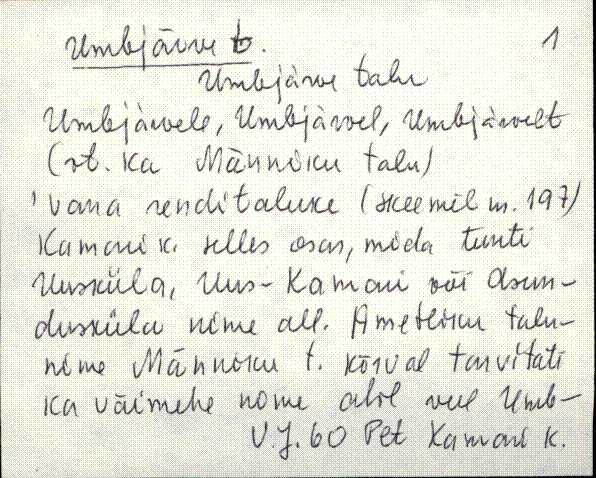 Umbjärve t. 1
Umbjärve talu
Umbjärvele, Umbjärvel, Umbjärvelt
(vt. ka Männiku talu)
'vana renditaluke (skeemil nr. 197)
Kamari k. selles osas, mida tunti
Uusküla, Uus-Kamari või Asun-
dusküla nime all. Ametliku talu-
nime Männiku t. kõrval tarvitati
ka väimehe nime abil veel Umb-
V.J. 60 Pet Kamari k.